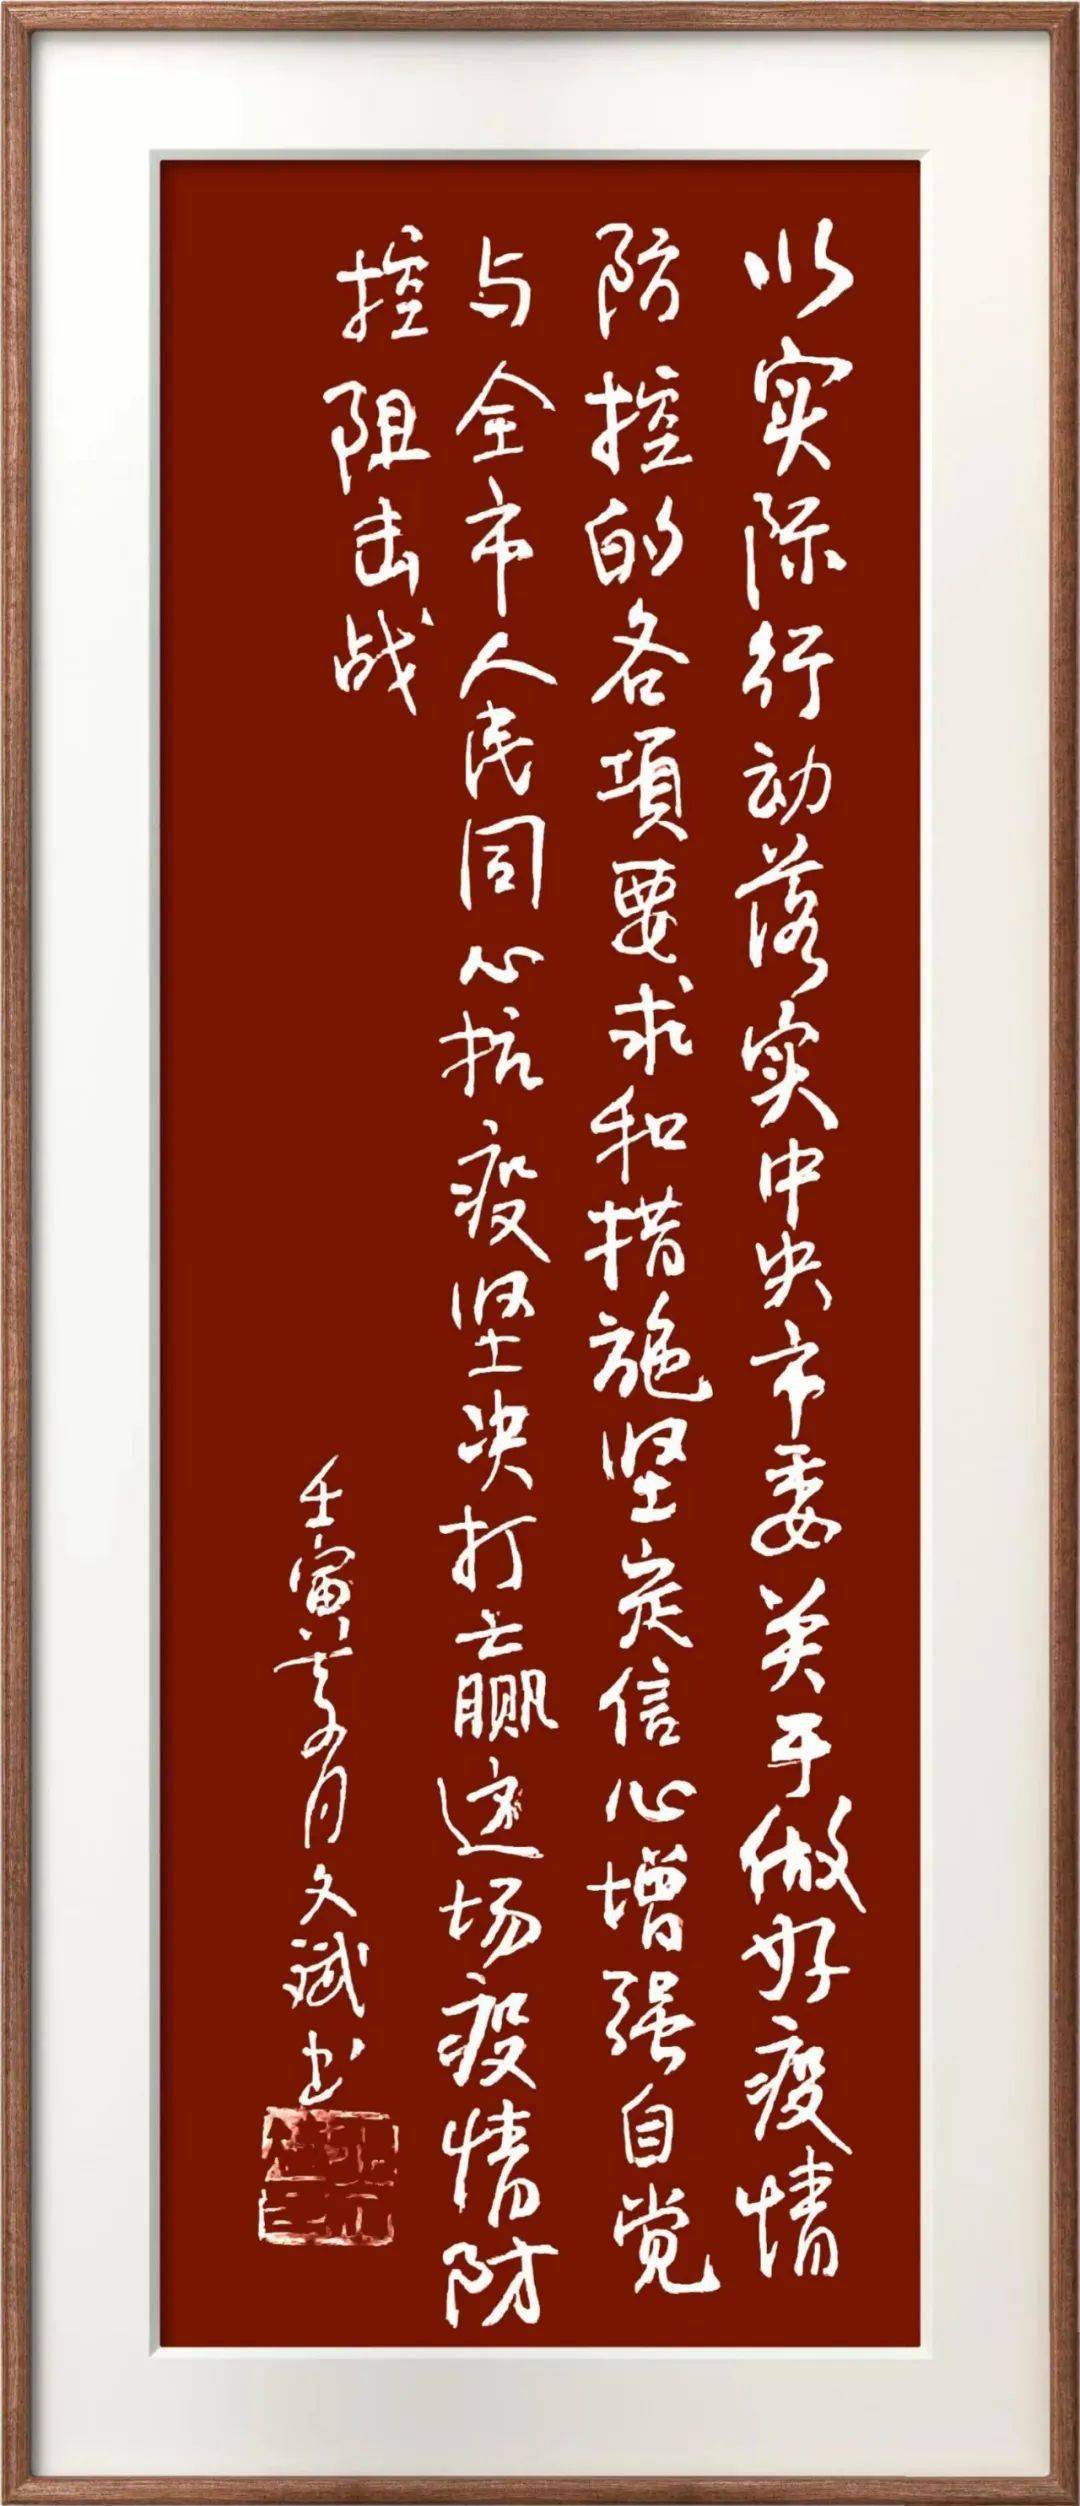 以实际行动落实中央市委关于做好疫情
防控的各項要求和措施坚定信心增强自觉
与全市人民同心抗疫坚决打赢这场疫情防
控阻击战
壬寅年月文斌书